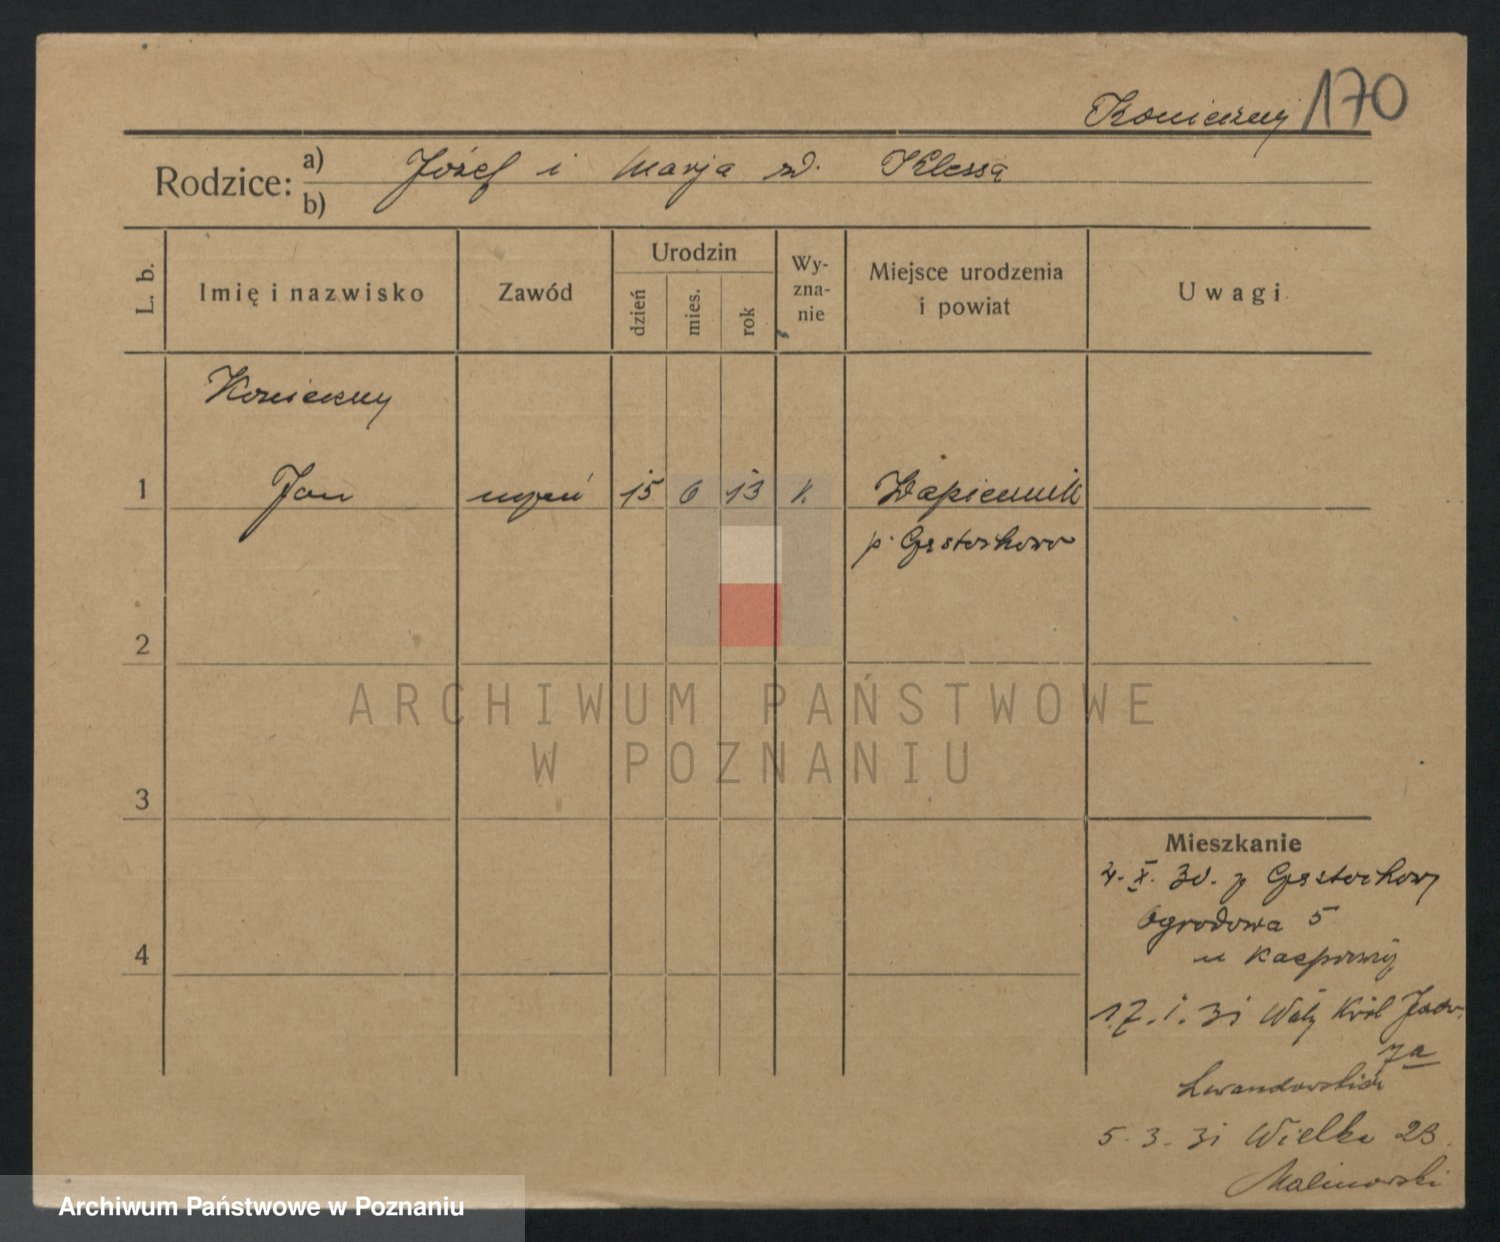 Konieczny 170
Rodzice: a) Józef i Marja zd. Klessa
b)
L. b. Imię i nazwisko Zawód Urodzin dzień mies. rok Wy-zna-nie Miejsce urodzenia i powiat Uwagi
Konieczny
1 Jan uczeń 15 6 13 k. Wapiennik
p. Częstochowa
2
3
4
ARCHIWUM PAŃSTWOWE
W POZNANIU
Mieszkanie
4. X. 30. z Częstochowy
Ogrodowa 5
u
17. 1. 31 Wały Król Jadw.
7a
5. 3. 31 Wielka 23.
Malinowski
Archiwum Państwowe w Poznaniu